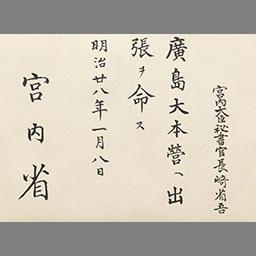 宮内大臣秘書官長崎省吾
廣島大本營ヘ出
張ヲ命ス
明治廿八年一月八日
宮内省